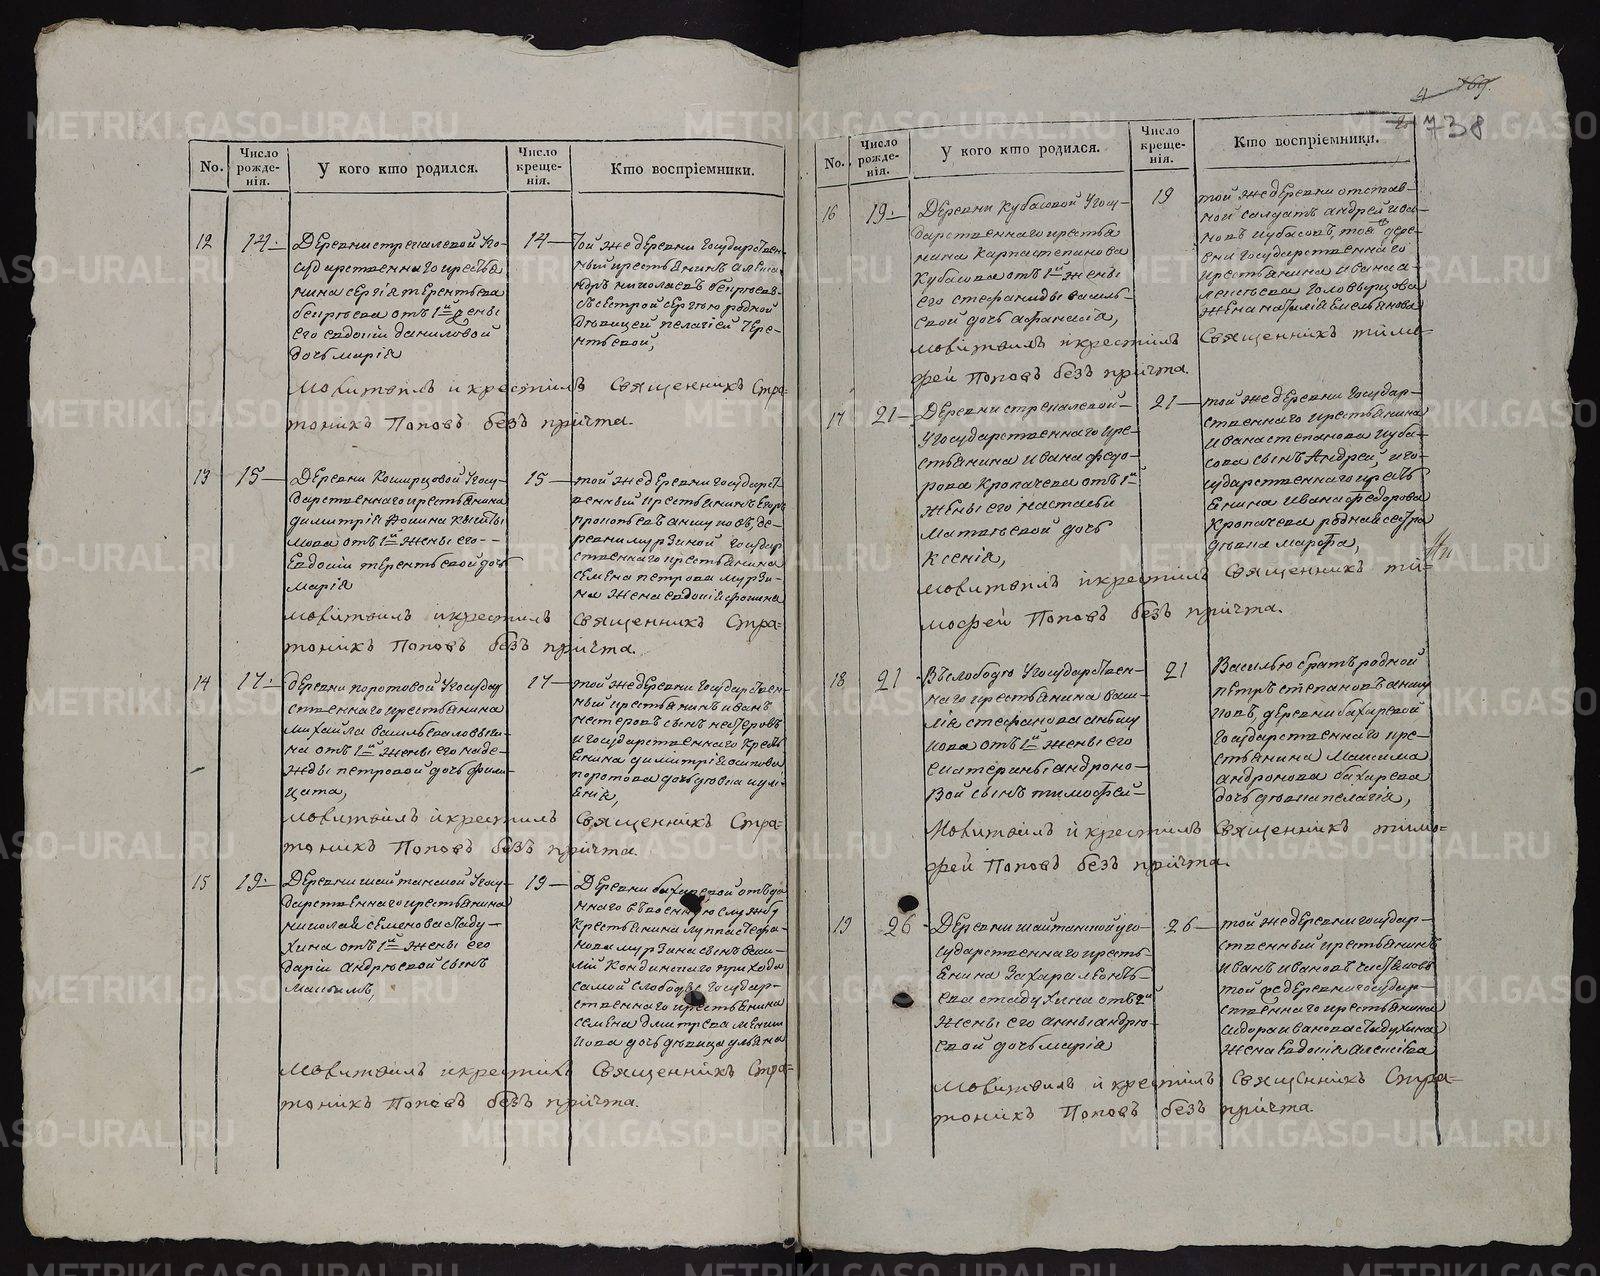 No.
Число рожде-
нія.
У кого кто родился.
Число креще-
нія.
Кто воспріемники.
12
14.
Деревни стрекалевой Го-
сударственнаго крестья
нина сергія терентьева
от 1й жены
его евдокіи даниловой
дочь марія
14
Той же деревни государствен
ный крестьянинъ алекса
ндръ николаевъ
съ сестрой сергѣю родной
дѣвицей пелагіей тере-
нтьевой,
Молитвилъ и крестилъ Священникъ Стра-
тоникъ Поповъ безъ причта.
13
15
Деревни У госу-
дарственнаго крестьянина
димитрія
отъ 1й жены его
Евдокіи терентьевой дочь
марія
15
той же деревни государст
венный крестьянинъ Егоръ
де-
ревни мурзиной государ
ственнаго крестьянина
семена петрова мурзи-
на жена евдокія фокина
Молитвилъ и крестилъ Священникъ Стра-
тоникъ Поповъ безъ причта.
14
17.
деревни поротовой У государ
ственнаго крестьянина
михаила васильева
отъ 1й жены его наде-
жды петровой дочь фили-
цата,
17
той же деревни государствен-
ный крестьянинъ иванъ
нестеровъ сынъ нестеровъ
и государственнаго кресть
янина димитрія осипова
поротова дочь дѣвка
Молитвилъ и крестилъ Священникъ Стра-
тоникъ Поповъ безъ причта.
15
19.
Деревни шайтанской У госу-
дарственнаго крестьянина
николая семенова стаду-
хина отъ 1й жены его
дарьи андрѣевой сынъ
Максимъ,
19
Деревни бахаревой отъда
ннаго въ военную службу
крестьянина луппа стефа-
нова мурзина сынъ васи-
лій Кондинскаго прихода
самой слободы государ-
ственнаго крестьянина
семена дмитрева
дочь дѣвица ульяна
Молитвилъ и крестилъ Священникъ Стра-
тоникъ Поповъ безъ причта.
169.
738
No.
Число рожде-
нія.
У кого кто родился.
Число креще-
нія.
Кто воспріемники.
16
19.
Деревни кубасовой У госу-
дарственнаго крестья
нина Карпа степанова
Кубасова отъ 1й жены
его стефаниды василь-
евой дочь афанасія,
19
той же деревни отстав-
ной салдатъ андрей ива-
новъ кубасовъ, той дере-
вни государственнаго
крестьянина Ивана а-
лексѣева
жена Емельянова
Молитвилъ и крестилъ Священникъ тимо-
фей Поповъ безъ причта.
17
21
Деревни стрекалевой
У государственнаго кре-
стьянина Ивана федо-
рова Кропачева отъ 1й
жены его настасьи
Матвѣевой дочь
Ксенія,
21
той же деревни государ-
ственнаго крестьянина
Ивана степанова куба-
сова сынъ Андрей, и го-
сударственнаго кресть
янина Ивана федорова
Кропачева родная сестра
дѣвка марфа,
Молитвилъ и крестилъ Священникъ ти-
мофей Поповъ безъ причта.
18
21
Въ слободѣ У государствен-
наго крестьянина васи-
лія стефанова аншу
кова отъ 1й жены его
екатерины андроно-
вой сынъ тимофей
21
Василью братъ родной
петръ степановъ аншу
ковъ, деревни бахаревой
государственнаго кре-
стьянина Максима
андронова бахарева
дочь дѣвка пелагія,
Молитвилъ и крестилъ Священникъ тимо-
фей Поповъ безъ причта.
19
26
Деревни шайтанской у го-
сударственнаго кресть-
янина Захара леонть-
ева стадухина отъ 2й
жены его анны андрѣ-
евой дочь марія
26
той же деревни государ-
ственный крестьянинъ
Иванъ Ивановъ
той же деревни государ-
ственнаго крестьянина
сидора иванова стадухина
жена Евдокія алексѣева
Молитвилъ и крестилъ Священникъ Стра-
тоникъ Поповъ безъ причта.
METRIKI.GASO-URAL.RU